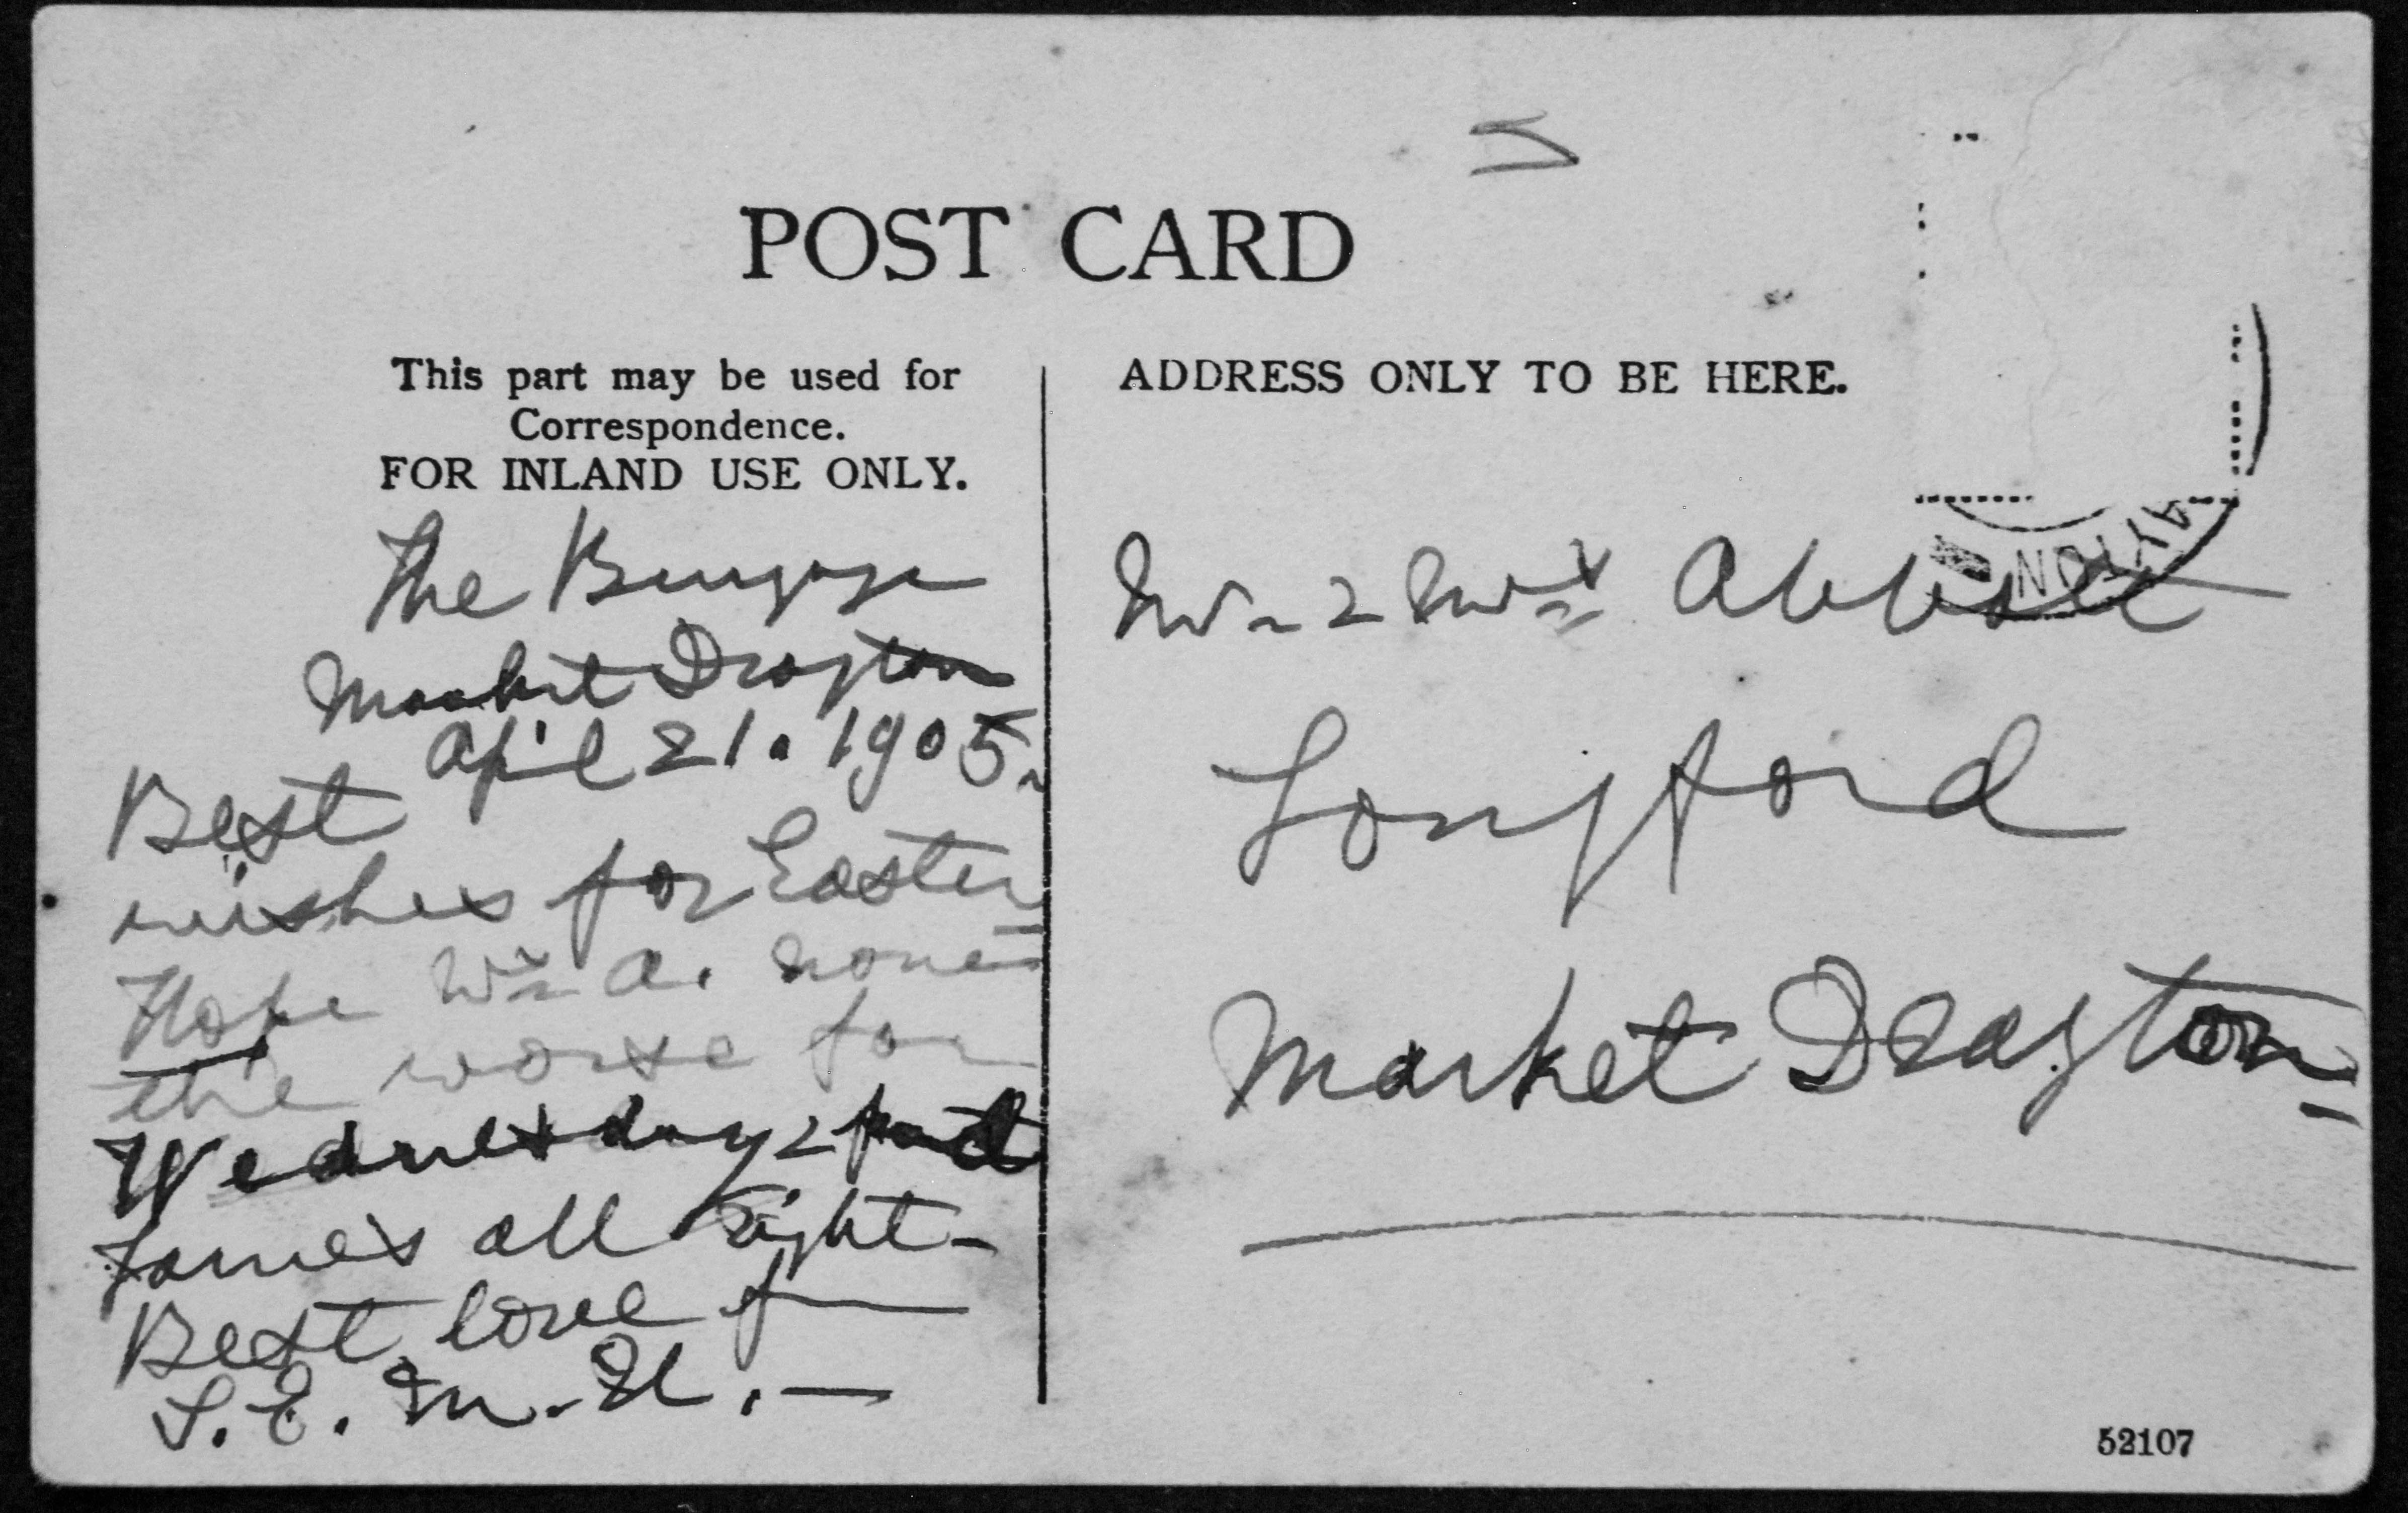 POST CARD
This part may be used for
Correspondence.
FOR INLAND USE ONLY.
The
Market Drayton
April 21. 1905.
Best
wishes for Easter
Hope Mrs A. none
the worse for
Wednesday &
James all right -
Best love
S. E. M. H. —
ADDRESS ONLY TO BE HERE.
Mr & Mrs Abbott
Longford
Market Drayton
52107